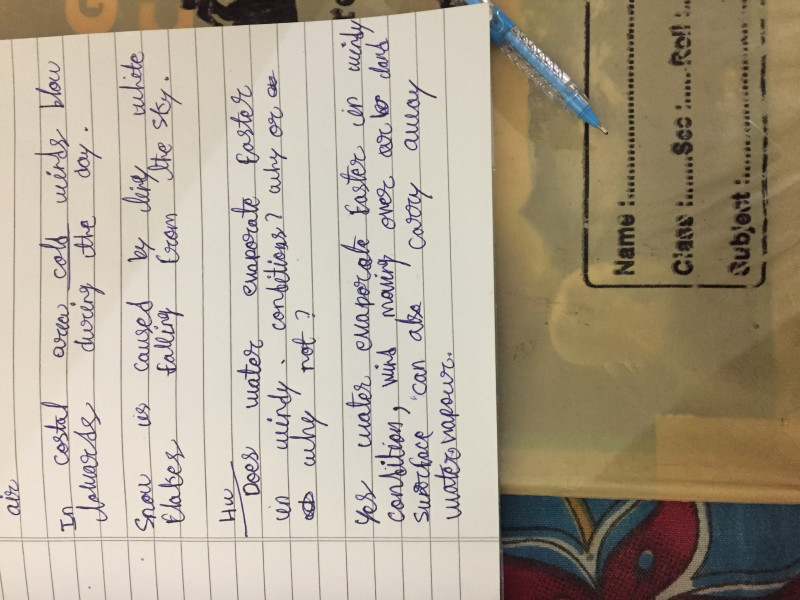 air
In costal area cold winds blow
towards during the day.
Snow is caused by tiny white
flakes falling from the sky.
Hw
Does water evaporate faster
in windy conditions? why or
why not?
Yes water evaporate faster in windy
condition, wind moving over
surface can also carry away
water vapour.
Name :
Class : Sec : Roll :
Subject :